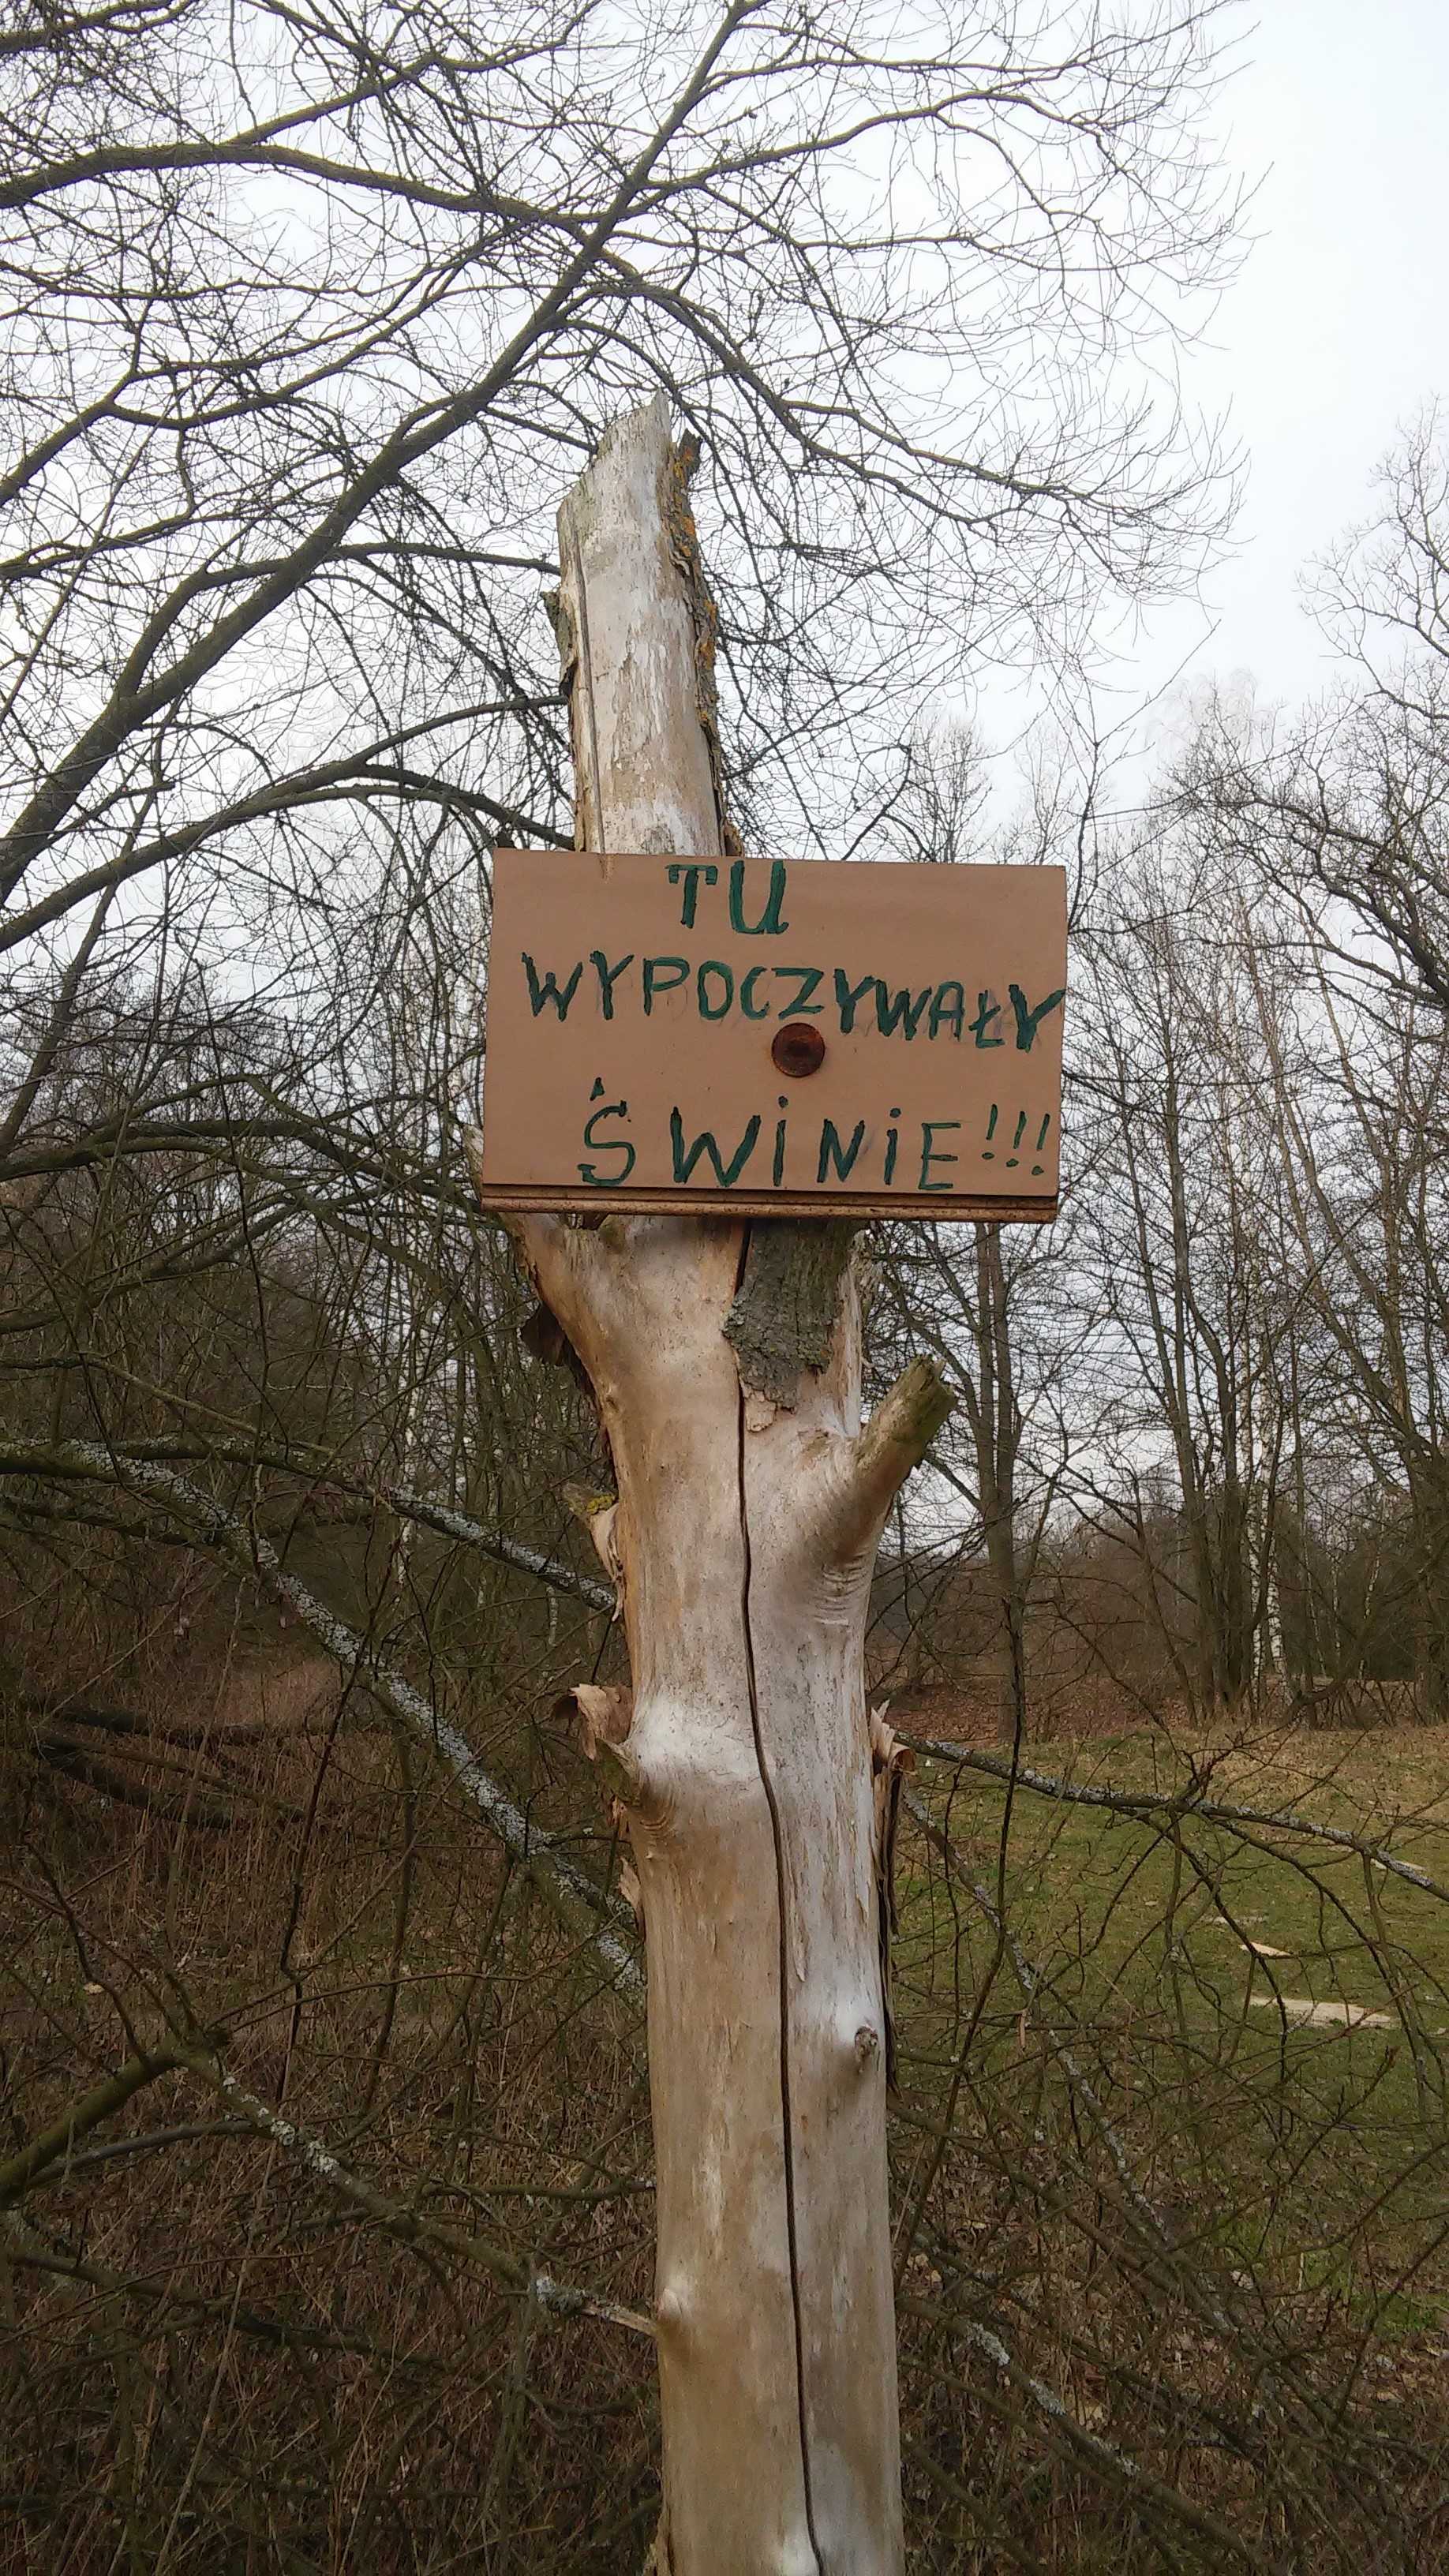 TU
WYPOCZYWAŁY
ŚWINIE!!!